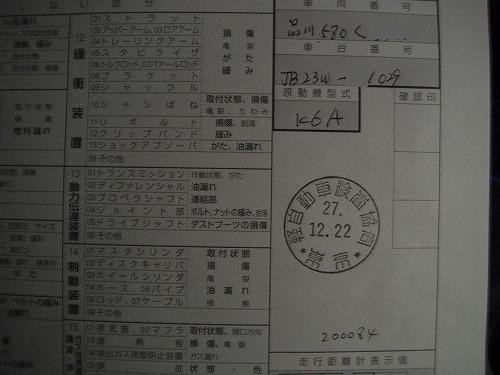 しない部分)
12 緩衝装置
01ストラット
02アッパーアーム,03ロアアーム
04トレーリングアーム
05スタビライザ
06トルクロッド,07パナールロッド
08ブラケット
09シャックル
損傷
亀裂
がた
緩み
10シャシばね
取付状態、損傷
亀裂、たわみ
11Uボルト
損傷、脱落
12クリップバンド
緩み
13ショックアブソーバ
がた、油漏れ
99その他
13 動力伝達装置
01トランスミッション
作動状態、がた
02ディファレンシャル
油漏れ
03プロペラシャフト
連結部
04ジョイント部
ボルト、ナットの緩み、脱落
05ドライブシャフト
ダストブーツの損傷
99その他
14 制動装置
01マスタシリンダ
02ディスクキャリパ
03ホイールシリンダ
04ホース、05パイプ
06ロッド、07ケーブル
取付状態
損傷
亀裂
油漏れ
99その他
15
01排気管、02マフラ
取付状態、開口方向
03遮熱板
損傷、亀裂
04排出ガス発散防止装置
ガス漏れ
状態・色
車両番号
品川580く
車台番号
JB23W-1029
原動機型式
K6A
確認印
軽自動車検査協会
27.
12.22
200084
走行距離計表示値